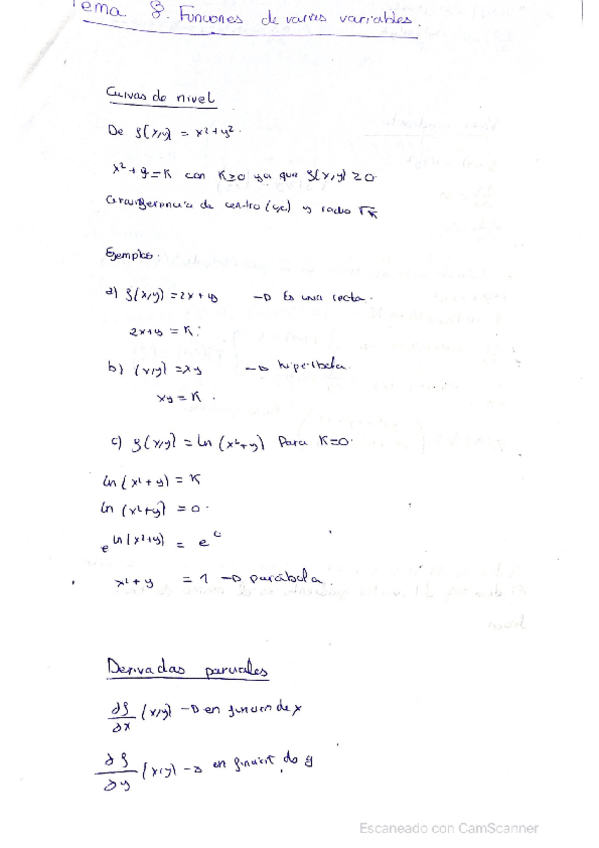 Tema 8. Funciones de varias variables.
Curvas de nivel
De f(x,y) = x²+y².
x²+y=K con K≥0 ya que f(x,y) ≥0
Circunferencia de centro (0,0) y radio √K
Ejemplos.
a) f(x,y) =2x+y → Es una recta.
2x+y = K.
b) (x,y) =xy → hiperbola.
xy=K.
c) f(x,y) = ln (x²+y) Para K=0.
ln (x²+y) = K
ln (x²+y) =0.
e^ln(x²+y) = e^0
x²+y = 1 → parábola.
Derivadas parciales
∂f/∂x (x,y) → en funcion de x
∂f/∂y (x,y) → en función de y
Escaneado con CamScanner